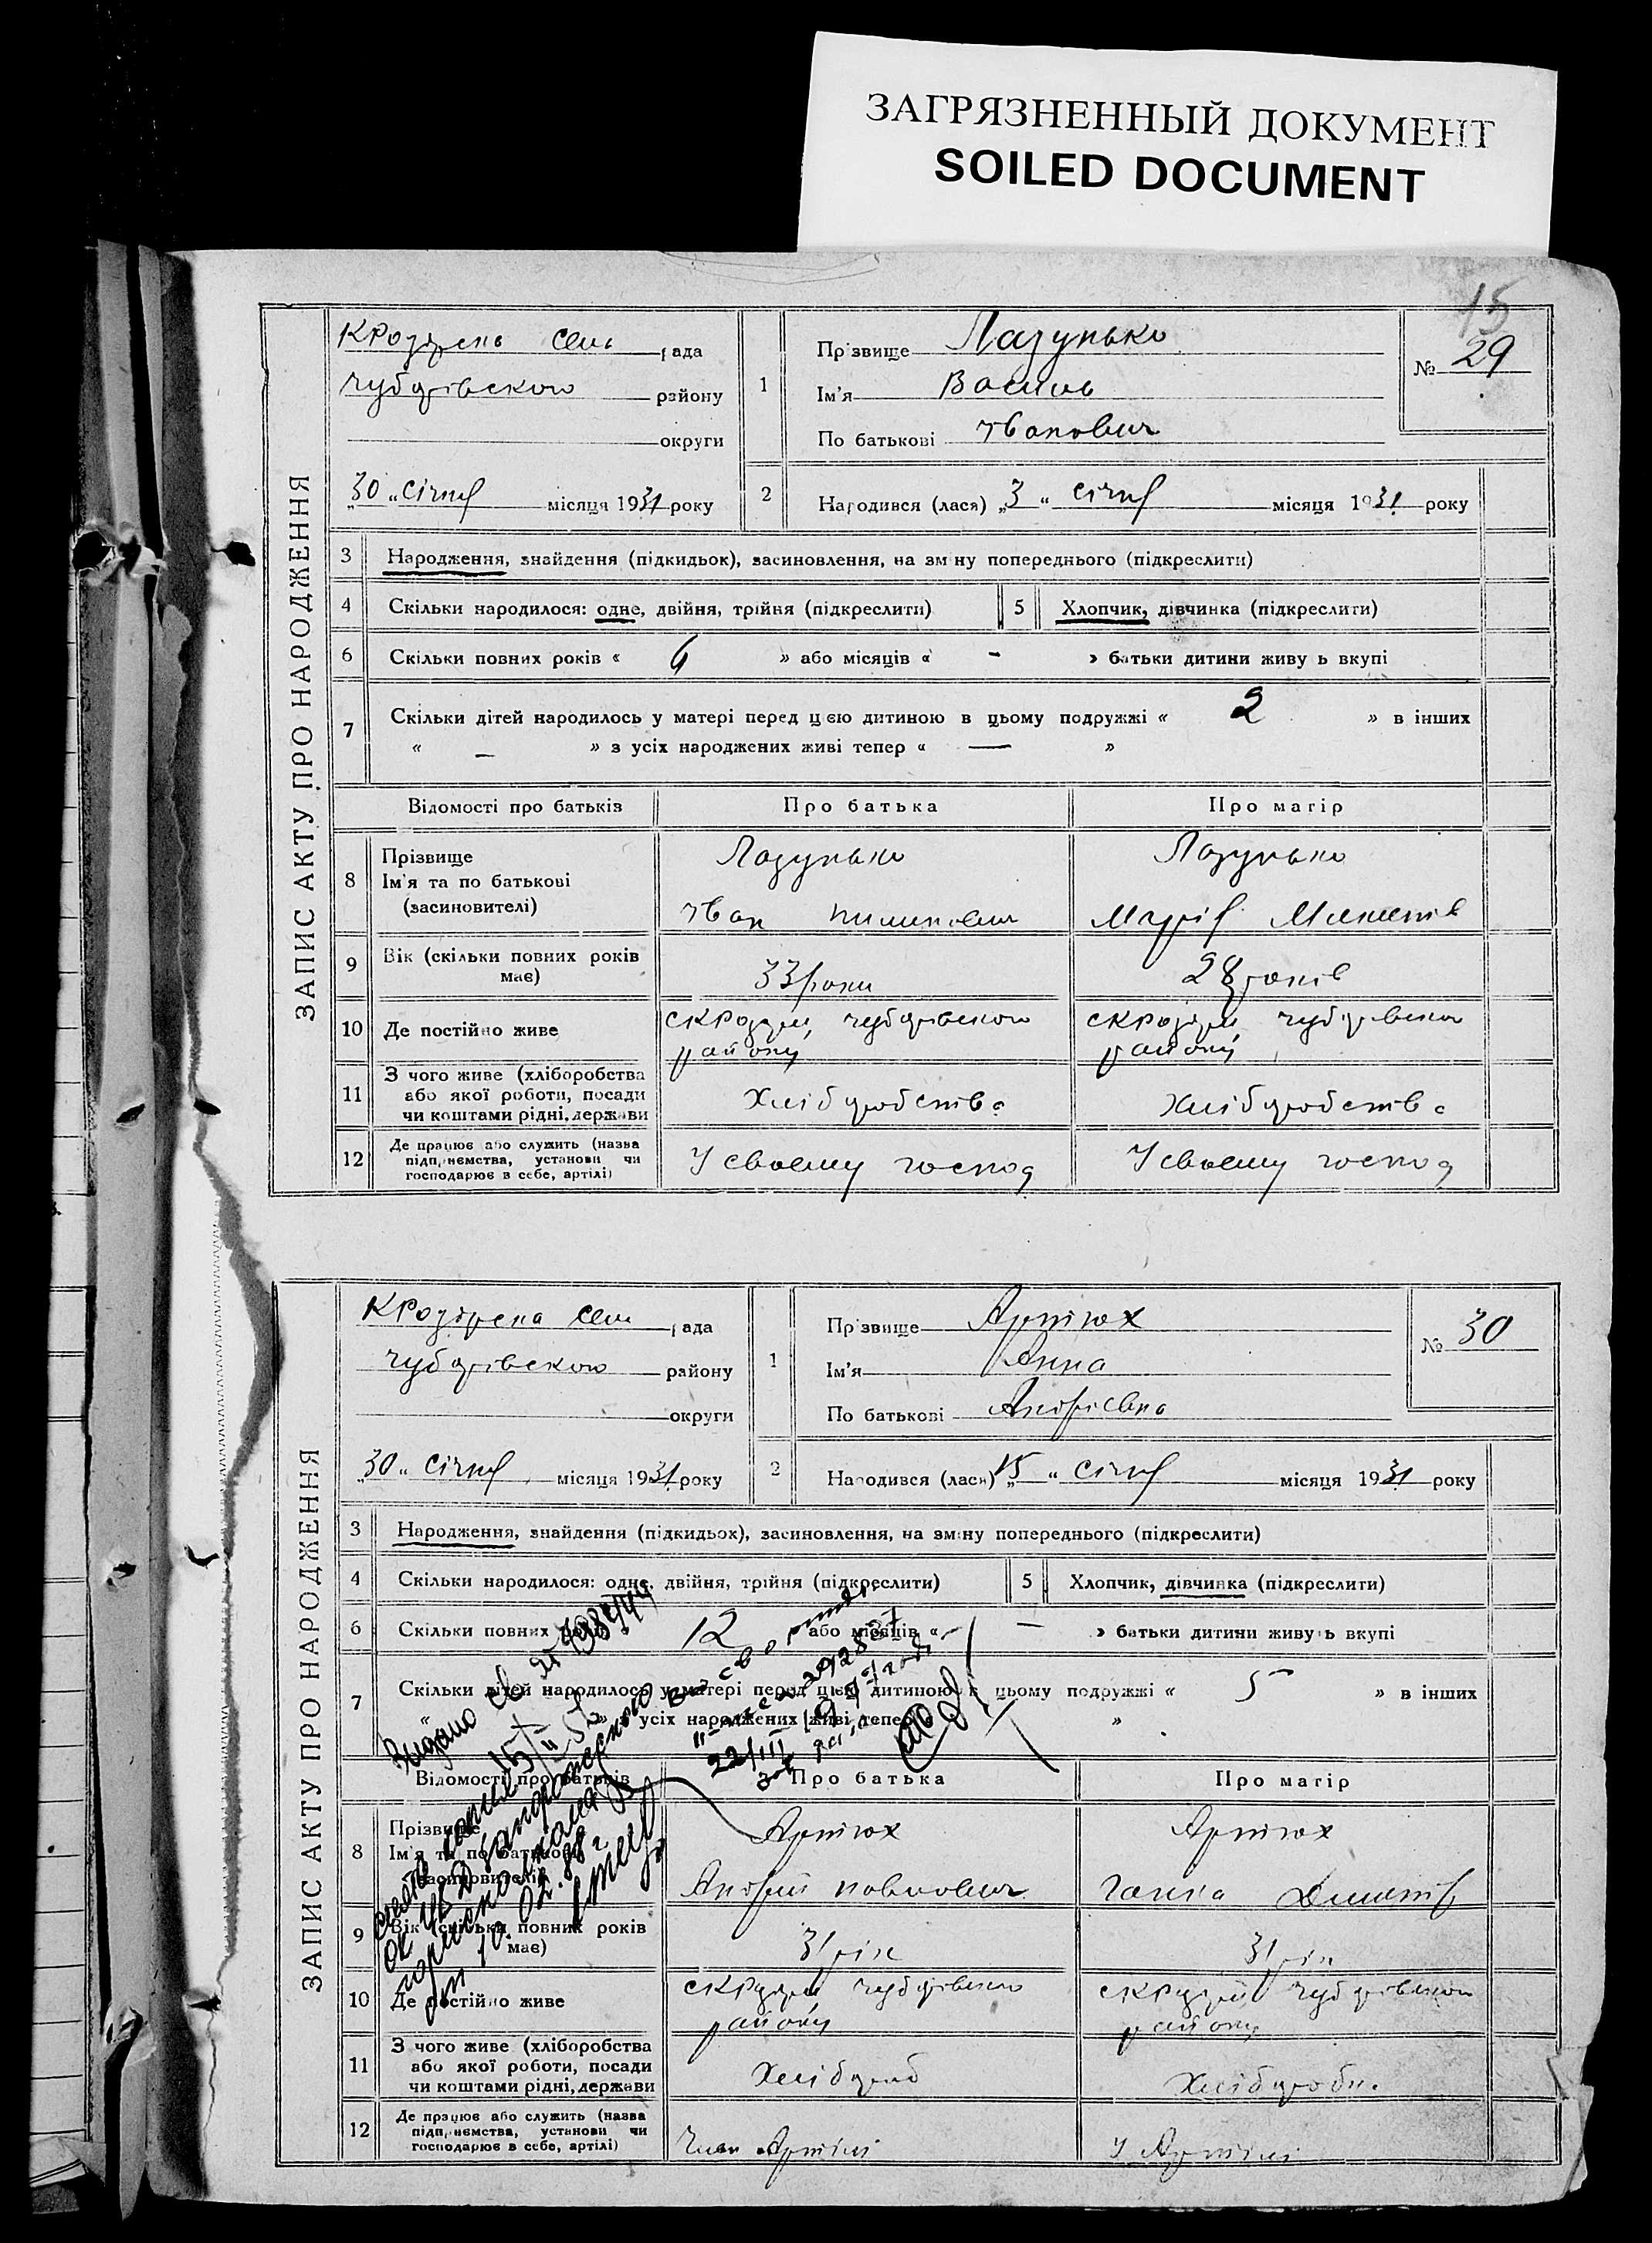 ЗАГРЯЗНЕННЫЙ ДОКУМЕНТ
SOILED DOCUMENT
15
ЗАПИС АКТУ ПРО НАРОДЖЕННЯ
рада
району
округи
„30“ січня місяця 1931 року
1
Прізвище Лазунько
Ім'я Василь
По батькові Іванович
№ 29
2
Народився (лася) „3“ січня місяця 1931 року
3 Народження, знайдення (підкидьок), засиновлення, на зміну попереднього (підкреслити)
4 Скільки народилося: одне, двійня, трійня (підкреслити)
5 Хлопчик, дівчинка (підкреслити)
6 Скільки повних років « 6 » або місяців « - » батьки дитини живуть вкупі
7 Скільки дітей народилось у матері перед цією дитиною в цьому подружжі « 2 » в інших
« — » з усіх народжених живі тепер « — »
Відомості про батьків Про батька Про матір
8 Прізвище
Ім'я та по батькові
(засиновителі)
Лазунько Лазунько
Іван
9 Вік (скільки повних років
має)
33 роки 28 років
10 Де постійно живе
району району
11 З чого живе (хліборобства
або якої роботи, посади
чи коштами рідні, держави
Хліборобств Хліборобств
12 Де працює або служить (назва
підприємства, установи чи
господарює в себе, артілі)
У своему господ У своему господ
ЗАПИС АКТУ ПРО НАРОДЖЕННЯ
рада
району
округи
„30“ січня місяця 1931 року
1
Прізвище Артюх
Ім'я Анна
По батькові Андріевна
№ 30
2
Народився (лася) „15“ січня місяця 1931 року
3 Народження, знайдення (підкидьок), засиновлення, на зміну попереднього (підкреслити)
4 Скільки народилося: одне, двійня, трійня (підкреслити)
5 Хлопчик, дівчинка (підкреслити)
6 Скільки повних років « 12 » або місяців « — » батьки дитини живуть вкупі
7 Скільки дітей народилось у матері перед цією дитиною в цьому подружжі « 5 » в інших
« » з усіх народжених живі тепер « »
Відомості про батьків Про батька Про матір
8 Прізвище
Ім'я та по батькові
(засиновителі)
Артюх Артюх
Андрій Павлович Ганна
9 Вік (скільки повних років
має)
31 рік 31 рік
10 Де постійно живе
району району
11 З чого живе (хліборобства
або якої роботи, посади
чи коштами рідні, держави
Хлібороб
12 Де працює або служить (назва
підприємства, установи чи
господарює в себе, артілі)
Член Артілі У Артілі